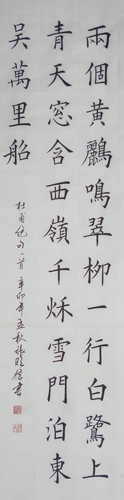 兩個黃鸝鳴翠柳一行白鷺上
青天窓含西嶺千秌雪門泊東
吳萬里船
杜甫绝句一首 辛卯年孟秋 書